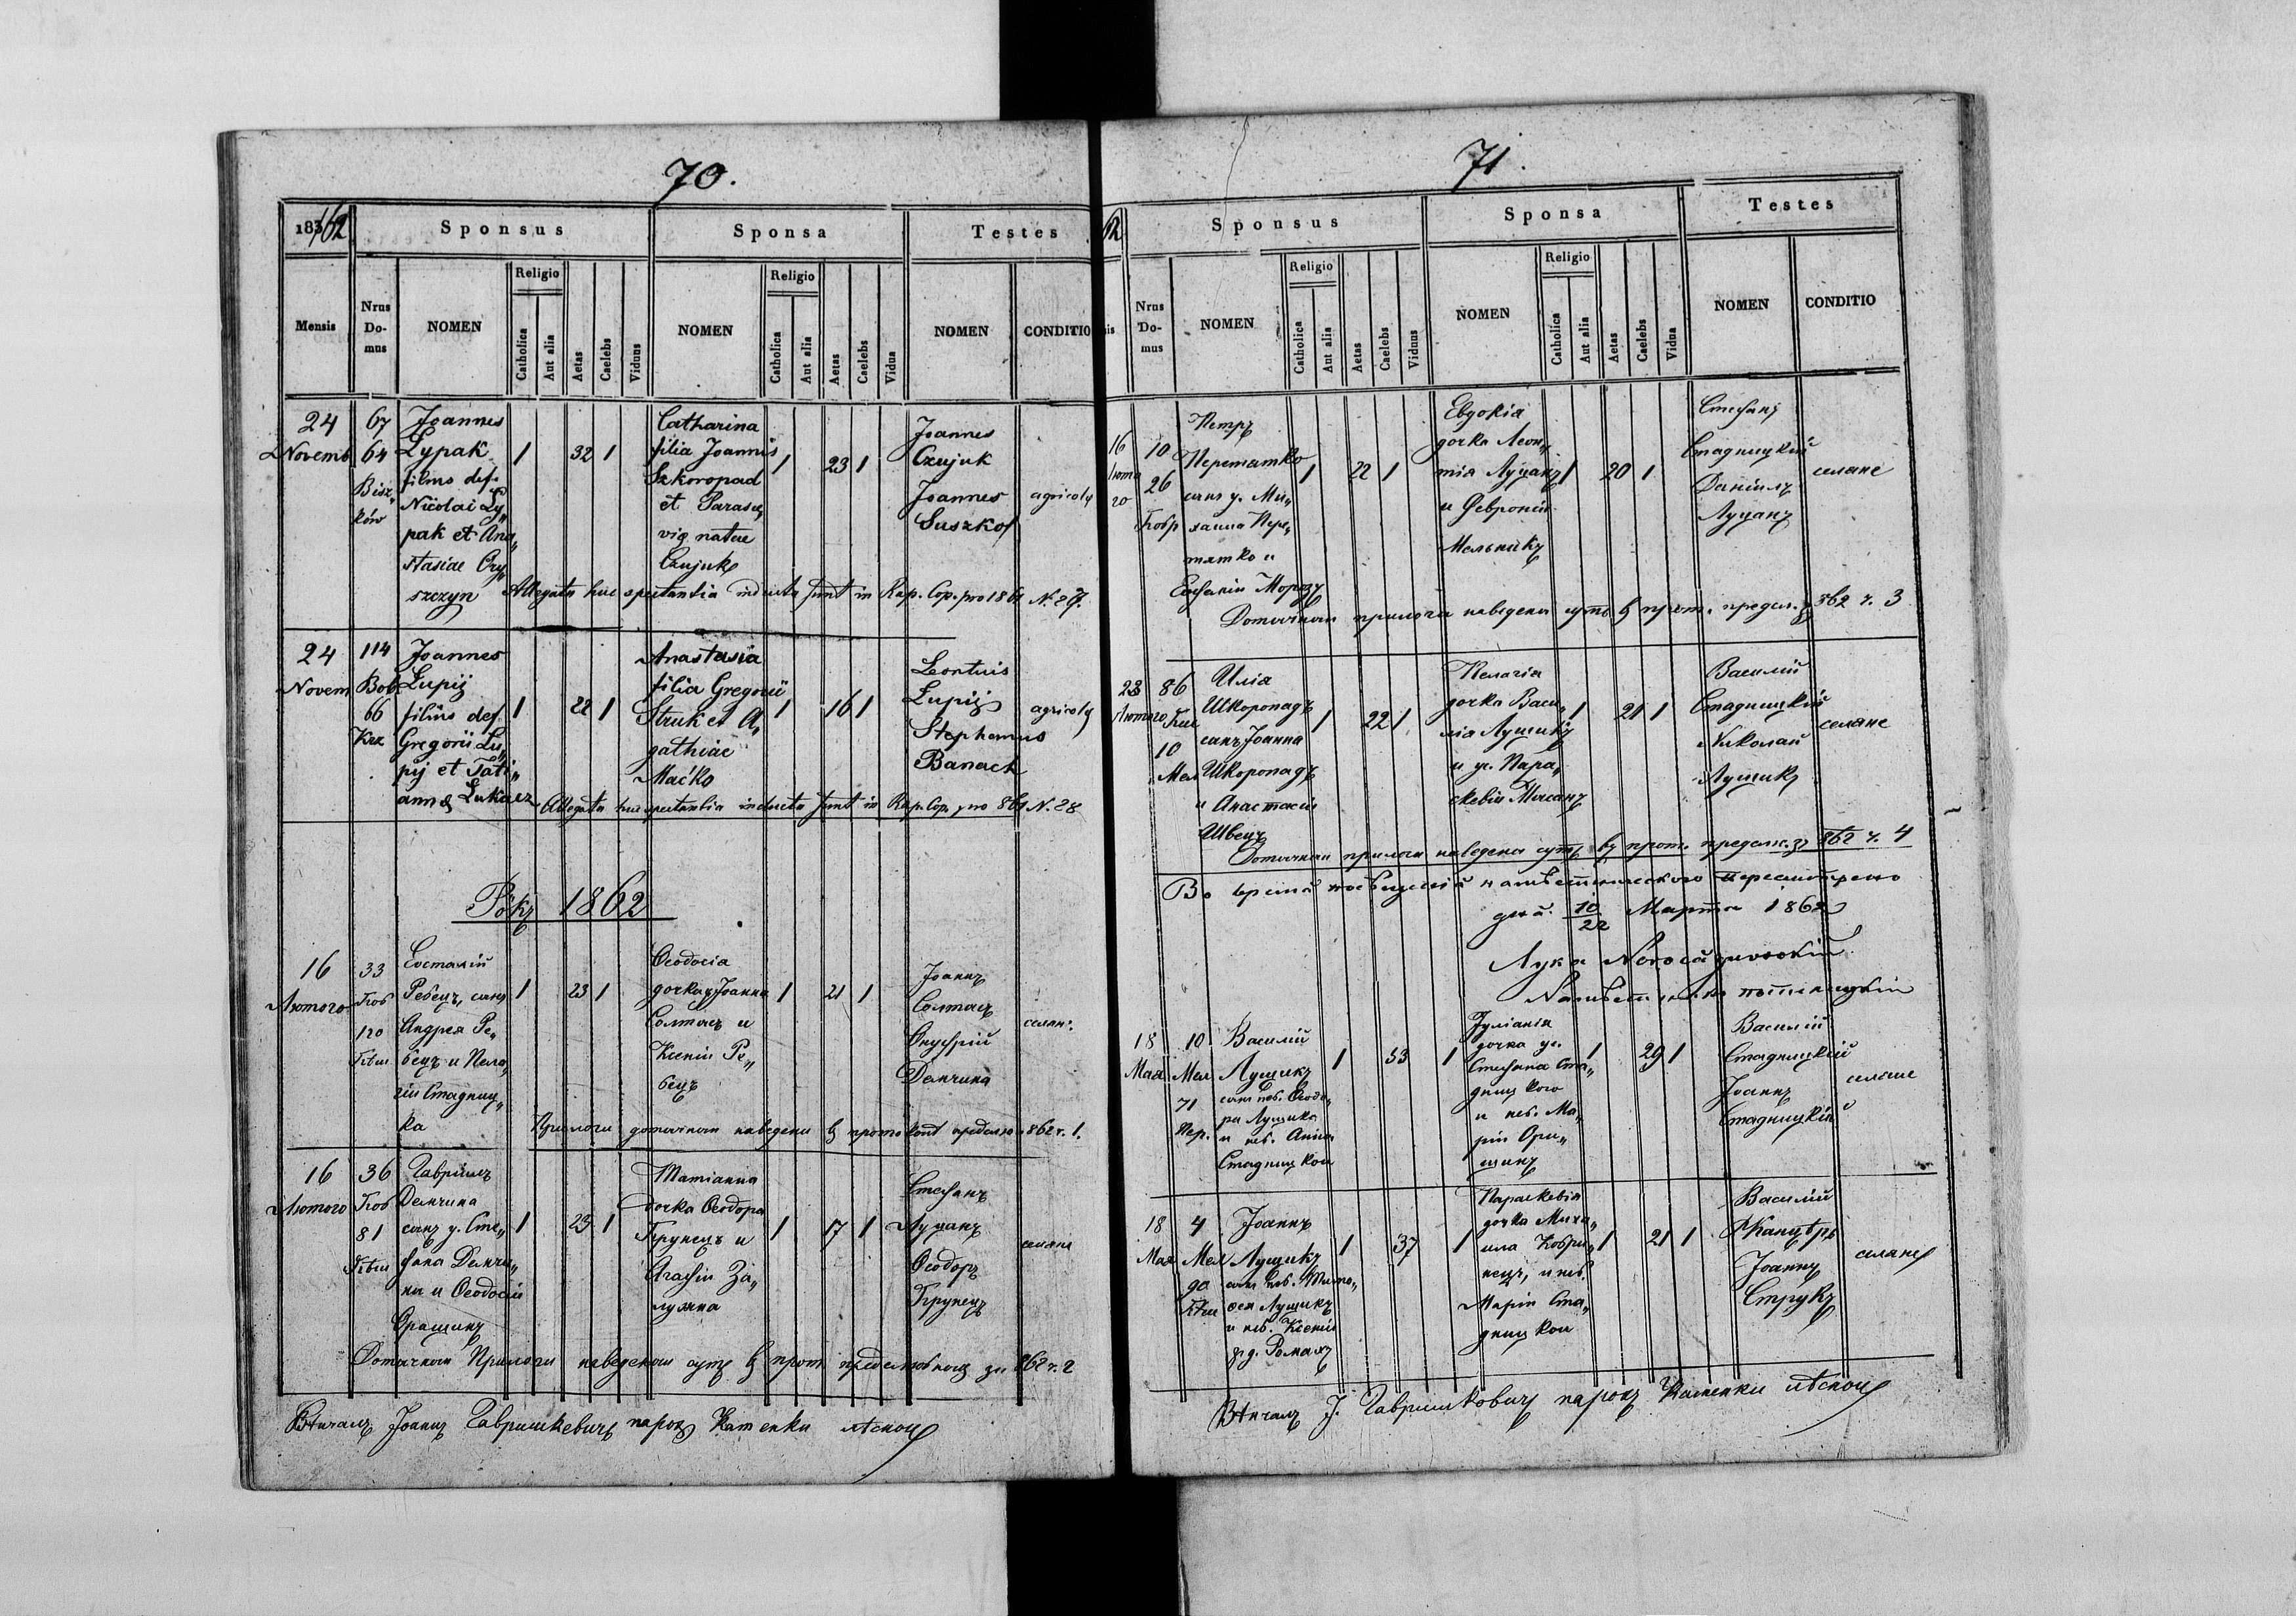 70.
183 1/62
Sponsus
Sponsa
Testes
Mensis
Nrus Domus
NOMEN
Religio
Catholica
Aut alia
Aetas
Caelebs
Viduus
NOMEN
Religio
Catholica
Aut alia
Aetas
Caelebs
Vidua
NOMEN
CONDITIO
24
Novemb
67
64
Bisz„
ków
Joannes
Lypak
filius def.
Nicolai Ly„
pak et Ana„
stasiae Ory„
szczyn
1 32 1
Catharina
filia Joannis
Szkoropad
et Parasce„
viae natae
Czujuk
1 23 1
Joannes
Czujuk
Joannes
Suszko
agricolae
Allegata huc spectantia inducta sunt in Rap. Cop. pro 1861 N. 27.
24
Novem
114
Bob
66
Krz
Joannes
Łupij
filius def.
Gregorii Łu„
pij et Tati„
annae Łukacz
1 22 1
Anastasia
filia Gregorii
Struk et A„
gathiae
Maćko
1 16 1
Leontius
Łupij
Stephanus
Banach
agricolae
Allegata huc spectantia inducta sunt in Rap. Cop. pro 861 N. 28
Рôкъ 1862
16
Лютого
33
Боб
120
Евстахій
Ребецъ, сынъ
Андрея Ре„
бецъ и Пела„
гіи Стадниц„
ка
1 23 1
Ѳеодосія
дочка Іоанна
Солтысъ и
Ксеніи Ре„
бецъ
1 21 1
Іоаннъ
Солтысъ
Онуфрій
Демчина
селян.
Прилоги дотычныи наведени 862 ч. 1.
16
Лютого
36
Боб
81
Гавріилъ
Демчина
сынъ у. Сте„
фана Демчи„
ны и Ѳеодосіи
Оращинъ
1 23 1
Татіанна
дочка Ѳеодора
Грунецъ и
Агафіи За„
лужна
1 17 1
Стефанъ
Луцанъ
Ѳеодоръ
Грунецъ
селяне
Дотычныи Прилоги наведеныи суть въ прот. за 862 ч. 2
Вѣнчалъ Іоаннъ Гавришкевичъ парохъ Каменки лѣсной
71.
62
Sponsus
Sponsa
Testes
Nrus Domus
NOMEN
Religio
Catholica
Aut alia
Aetas
Caelebs
Viduus
NOMEN
Religio
Catholica
Aut alia
Aetas
Caelebs
Vidua
NOMEN
CONDITIO
16
Люто
го
10
26
Бобр
Петръ
Перетятко
сынъ у. Ми„
хаила Пере„
тятко и
Евфиміи Морозъ
1 22 1
Евдокія
дочка Леон„
тія Луцанъ
и Февроніи
Мельникъ
1 20 1
Стефанъ
Стадницкій
Даніилъ
Луцанъ
селяне
Дотычныи прилоги наведени суть въ прот. предсл. за 862 ч. 3
23
Лютого
86
10
Мел
Илія
Шкоропадъ
сынъ Іоанна
Шкоропадъ
и Анастасіи
Швецъ
1 22 1
Пелагія
дочка Васи„
лія Лущикъ
и у. Пара„
скевіи Мисанъ
1 21 1
Василій
Стадницкій
Николай
Лущикъ
селяне
Дотычныи прилоги наведени суть въ прот. предсл. за 862 ч. 4
Во время посѣщенія намѣстническаго пересмотрено
дня 10/22 Марта 1862
Лука
18
Мая
10
Мел
71
Пер.
Василій
Лущикъ
сынъ пок. Ѳеодо„
ра Лущика
и пок. Анны
Стадницкои
1 33 1
Іуліанія
дочка ус.
Стефана Ста„
дницкого
и пок. Ма„
ріи Ори„
щинъ
1 29 1
Василій
Стадницкій
Іоаннъ
Стадницкій
селяне
18
Мая
4
Мел
90
Іоаннъ
Лущикъ
сынъ пок. Тимо„
фея Лущикъ
и пок. Ксеніи
Ромахъ
1 37 1
Параскевія
дочка Миха„
ила Кобри„
нецъ, и пок.
Маріи Ста„
дницкои
1 21 1
Василій
Іоаннъ
Струкъ
селяне
Вѣнчалъ І. Гавришкевичъ парохъ Каменки лѣсной